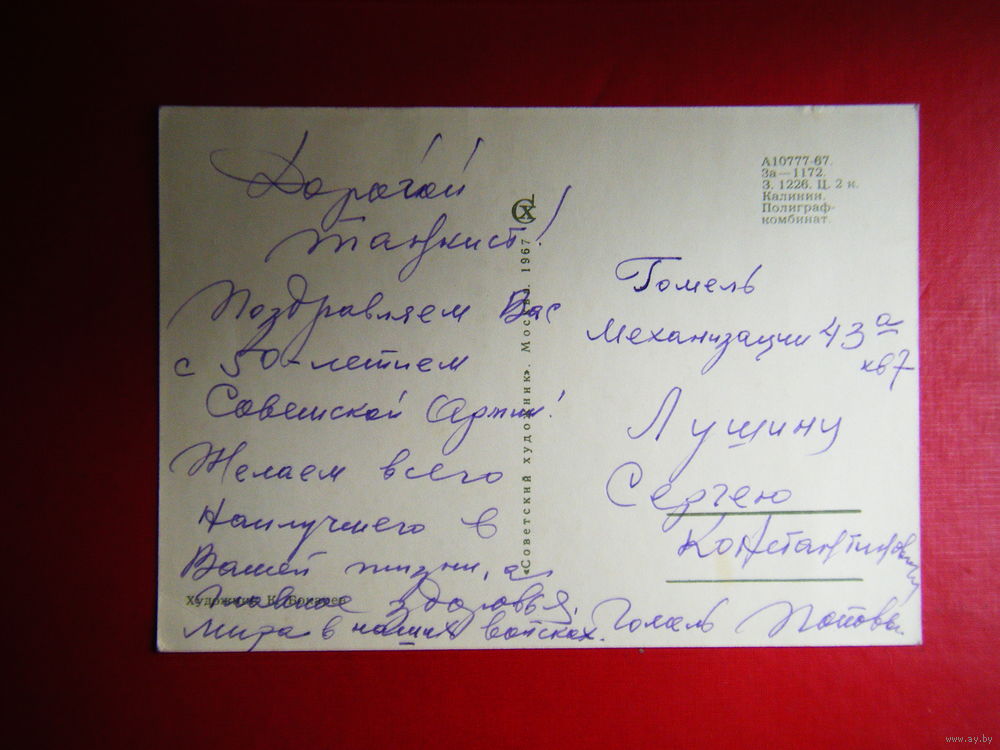 Дорогой
танкист!
Поздравляем Вас
с 50-летием
Советской Армии!
Желаем всего
наилучшего в
Вашей жизни, а
главное здоровья,
мира в наших войсках.
Художник К. Бокарев
«Советский художник». Москва. 1967
СХ
А10777-67.
За—1172.
З. 1226. Ц. 2 к.
Калинин.
Полиграф-
комбинат.
Гомель
Механизации 43а
кв 7
Лущину
Сергею
Константиновичу
Гомель Поповы.
www.ay.by